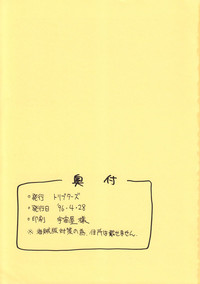 奥付
*発行 トリプターズ
*発行日 '96・4・28
*印刷 宇宙屋 様
※海賊版対策の為、住所は載せません。